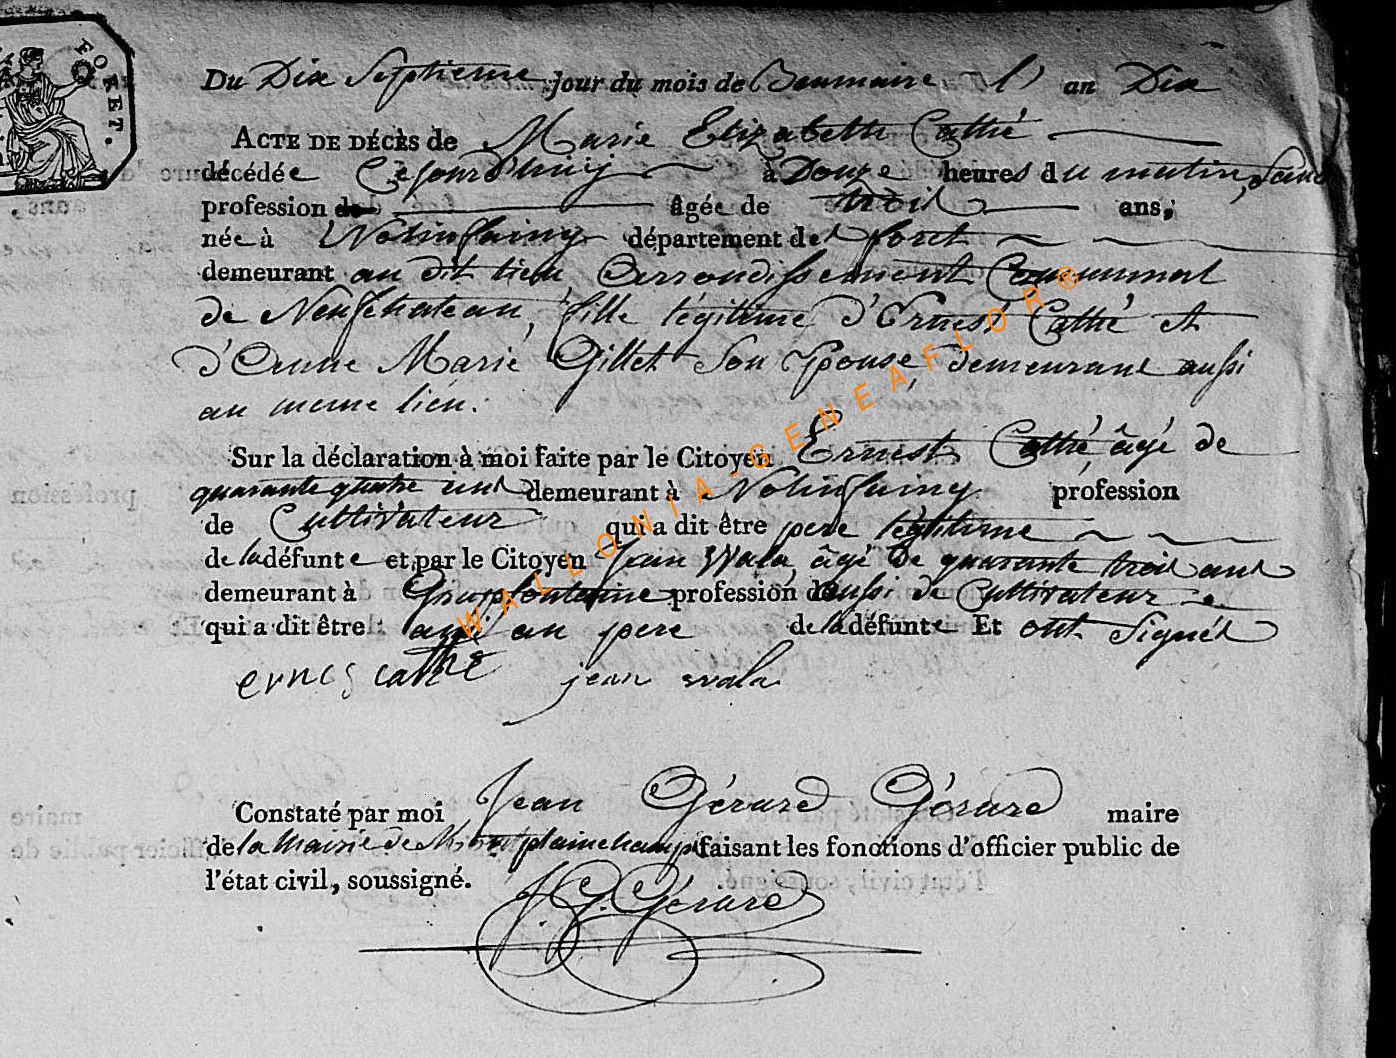 FORET.
Du Dix Septieme jour du mois de Brumaire l' an Dix
ACTE DE DÉCÈS de Marie Elizabeth Cathé
décédée Cejourd'huy à Douze heures du matin, Sans
profession de âgée de trois ans,
née à Nolinfaing département des forêt
demeurant au dit lieu, Arrondissement Communal
de Neufchateau, fille légitime d'Ernest Cathé et
d'Anne Marie Gillet Son Epouse, demeurant aussi
au meme lieu.
Sur la déclaration à moi faite par le Citoyen Ernest Cathé âgé de
quarante quatre ans demeurant à Nolinfaing profession
de Cultivateur qui a dit être pere légitime
de la défunte et par le Citoyen Jean Wala, âgé de quarante trois ans
demeurant à profession aussi de Cultivateur
qui a dit être ami au pere de la défunte Et ont Signés
ernes cathe jean wala
Constaté par moi Jean Gérard Gérard maire
de la Mairie de Montplainchamps faisant les fonctions d'officier public de
l'état civil, soussigné. J. G. Gérard
WALLONIA-GENEAFLOR®